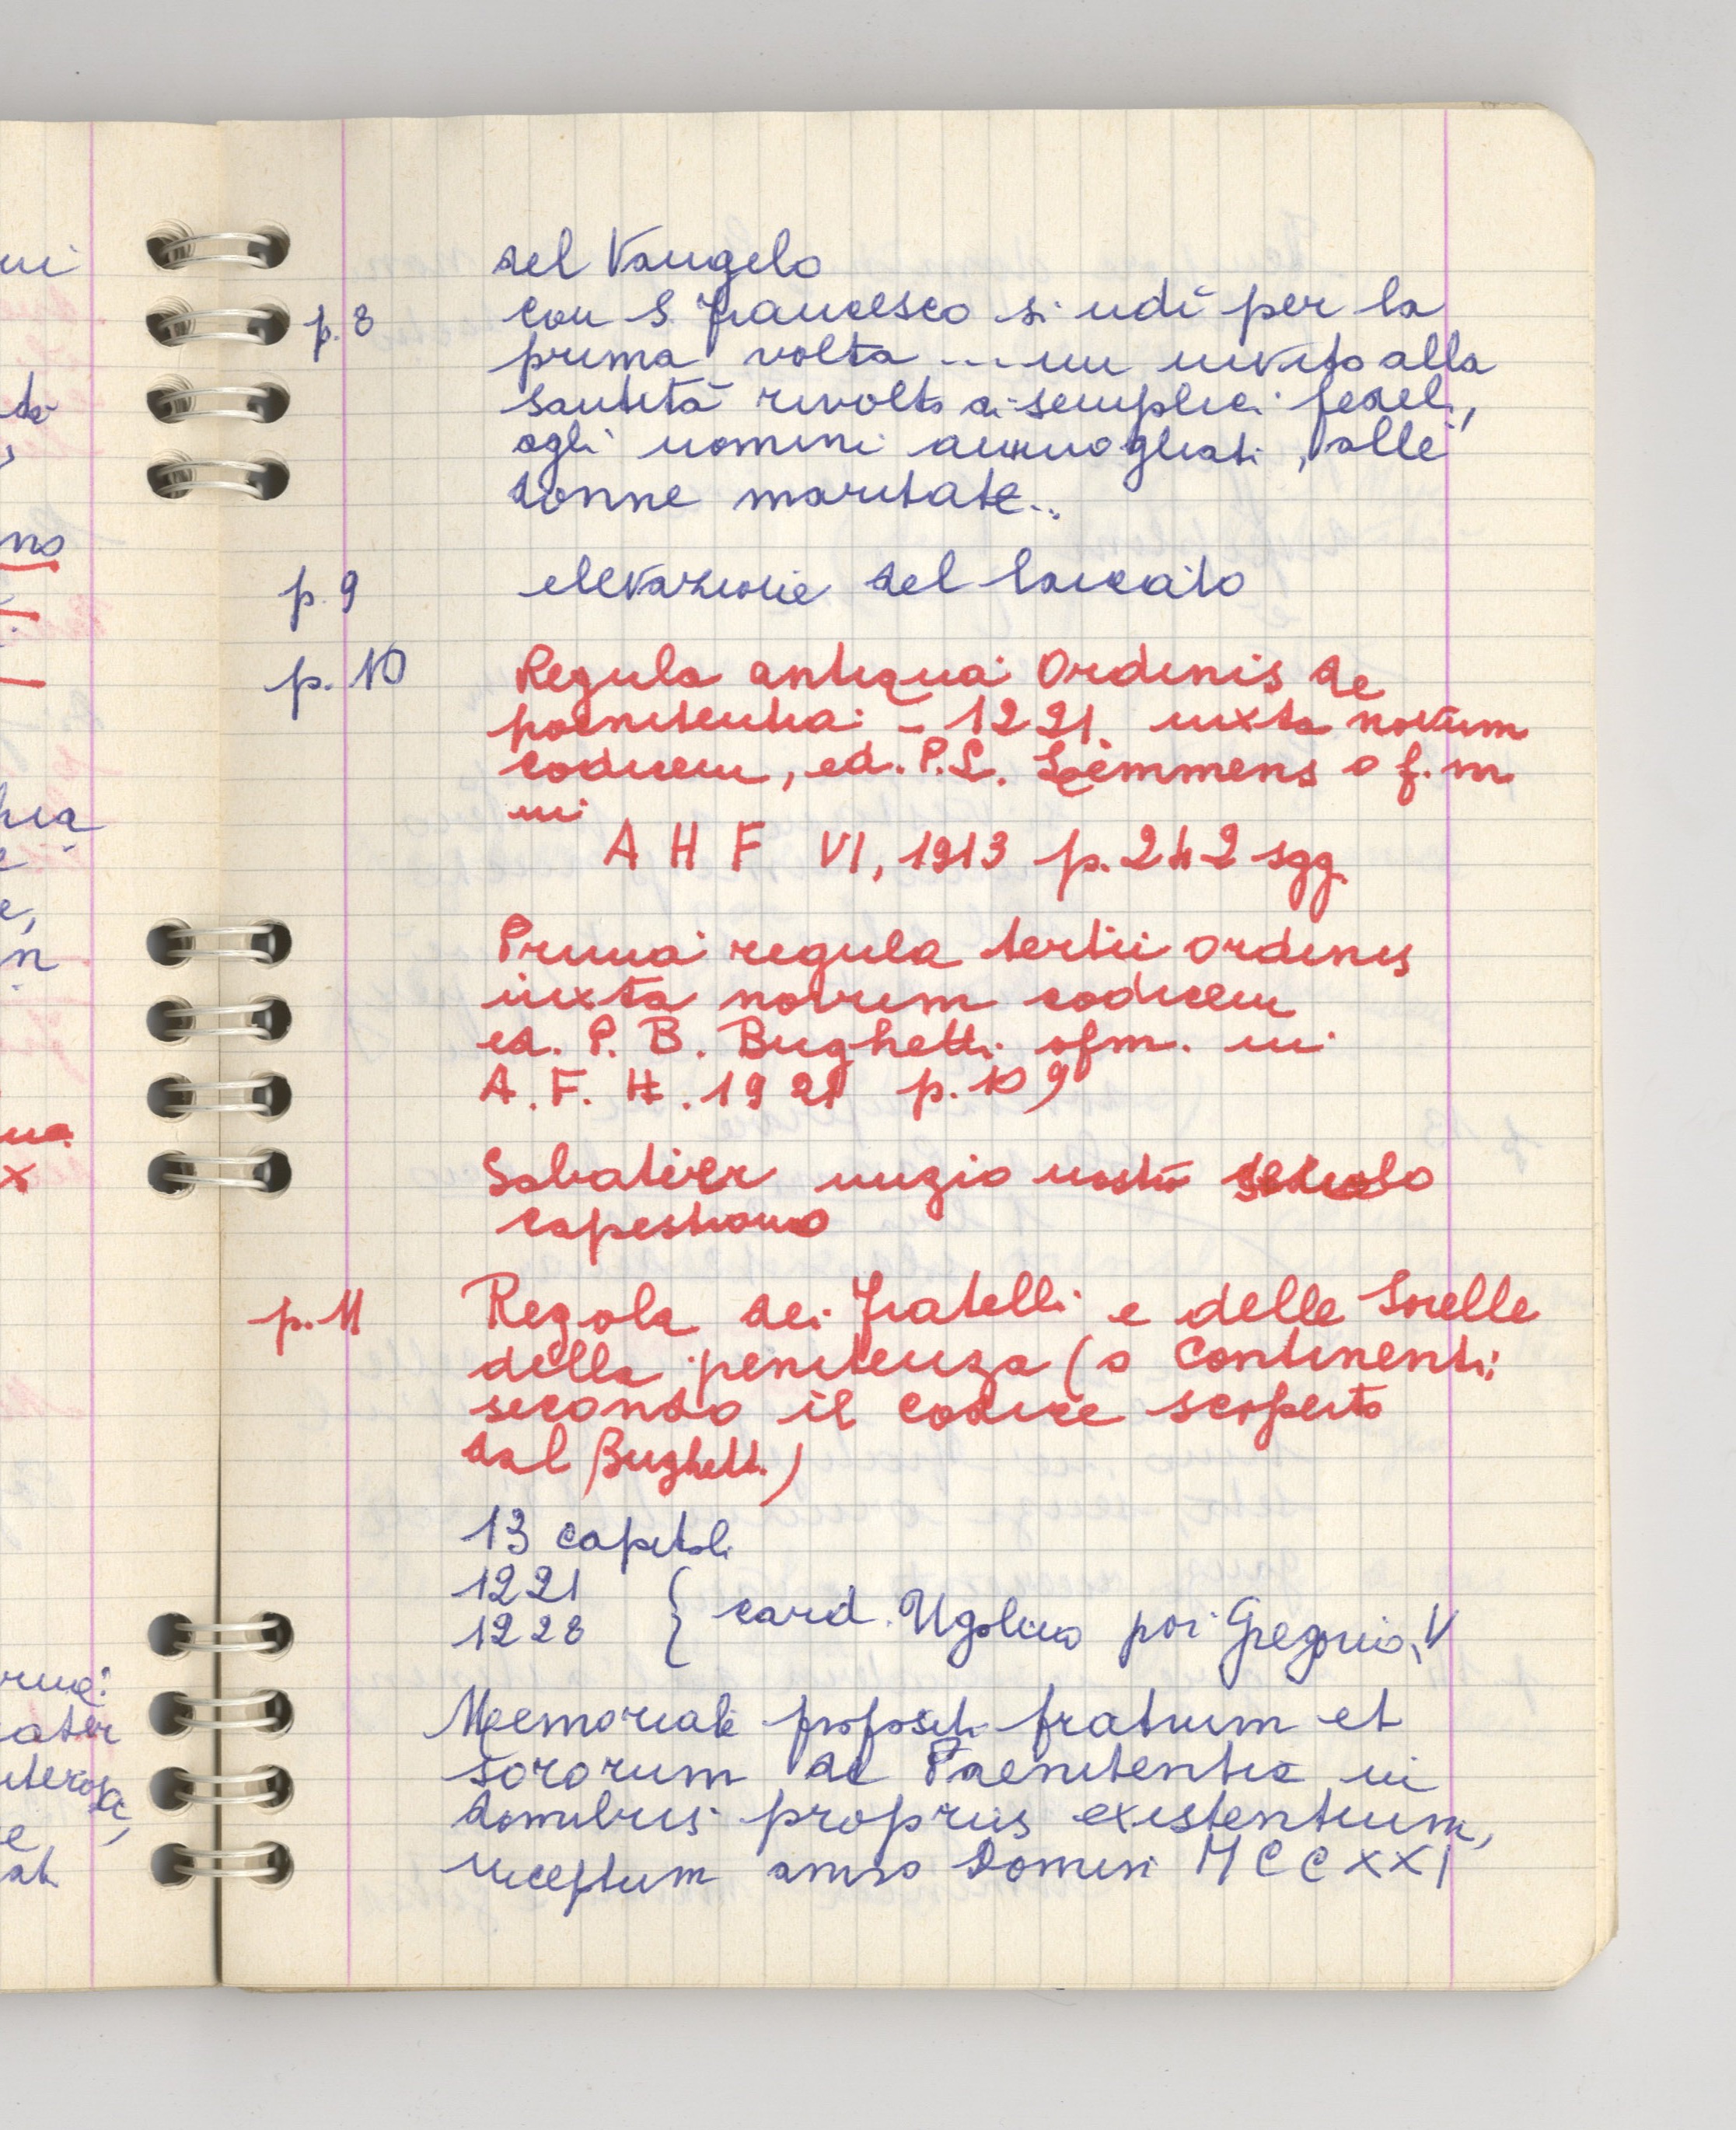 del Vangelo
p. 8 con S. Francesco si udì per la
prima volta ... un invito alla
santità rivolto ai semplici fedeli,
agli uomini ammogliati, alle
donne maritate...
p. 9 elevazione del laicato
p. 10 Regula antiqua Ordinis de
poenitentia - 1221 iuxta novum
codicem, ed. P. L. Lemmens o f. m
in
A H F VI, 1913 p. 242 sgg.
Prima regula tertii ordinis
iuxta novum codicem
ed. P. B. Bughetti ofm. in
A. F. H. 1921 p. 109
Sabatier inizio nostro secolo
Capestrano
p. 11 Regola dei Fratelli e delle Sorelle
della penitenza (o Continenti;
secondo il codice scoperto
dal Bughetti)
13 capitoli
1221
1228 { card. Ugolino poi Gregorio
Memoriale propositi fratrum et
sororum de Paenitentia in
domibus propriis existentium,
inceptum anno Domini MCCXXI
ui
no
hia
e,
n
x